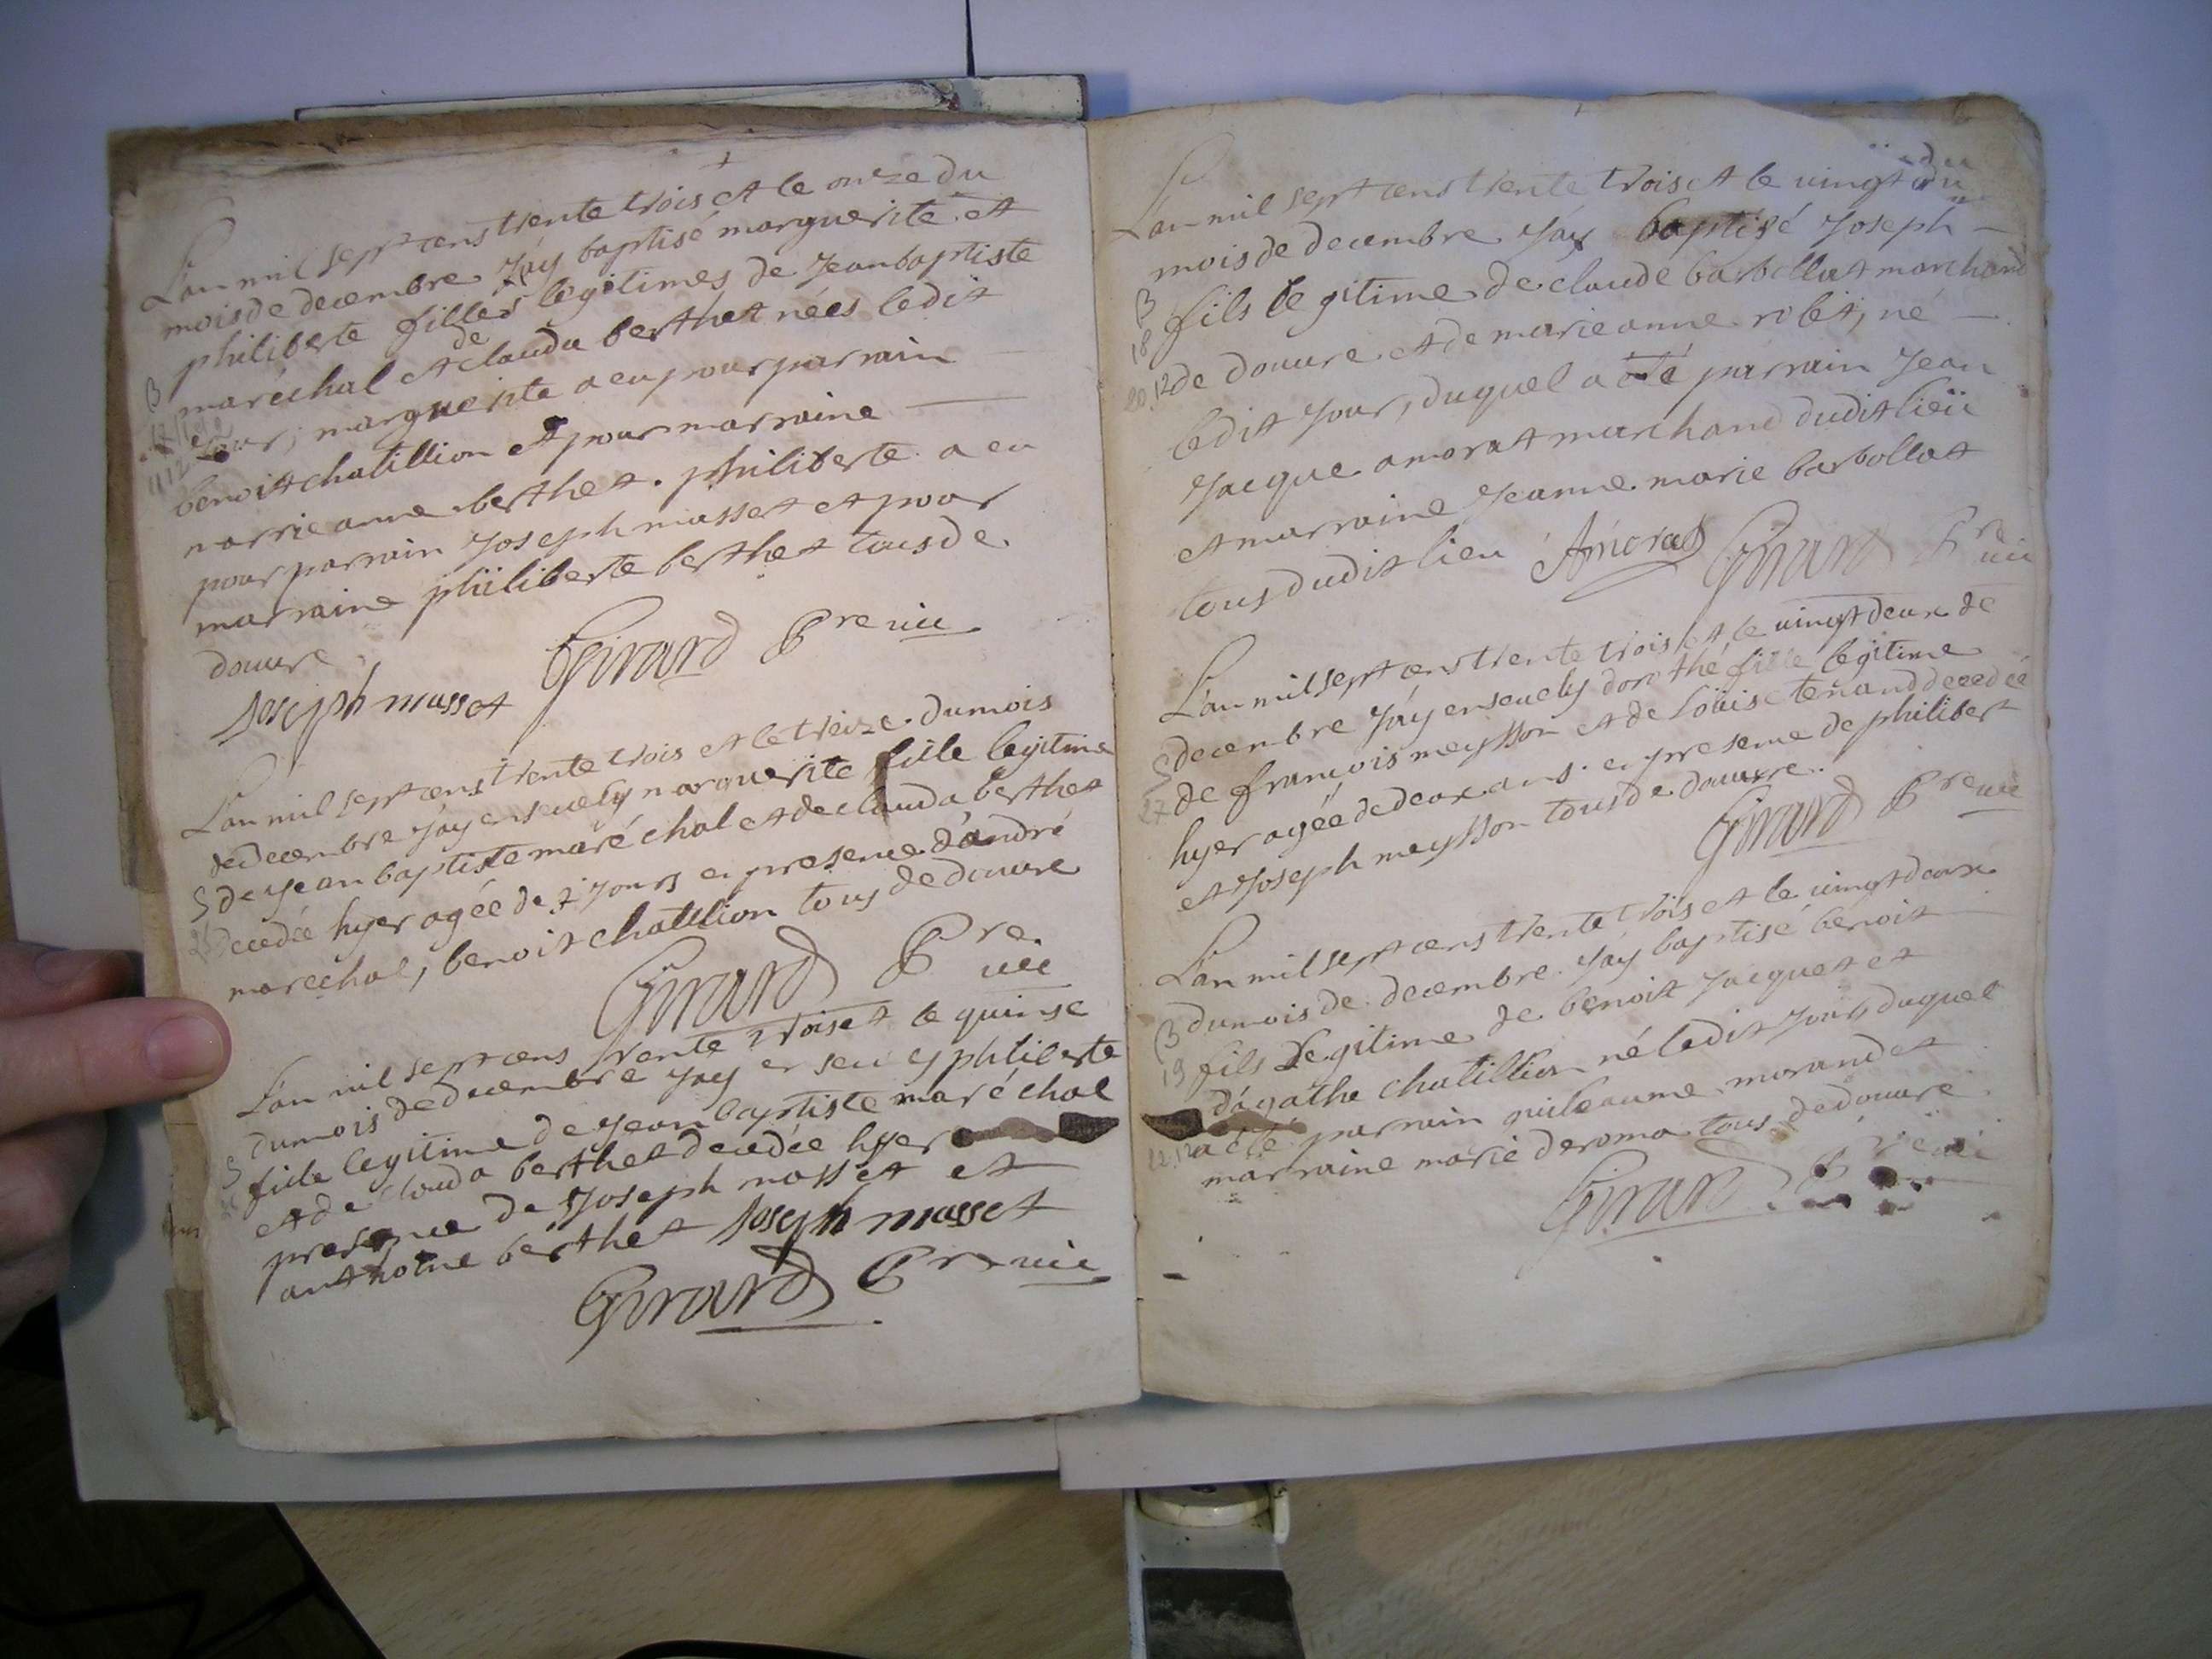 L'an mil sept cens trente trois et le onze du
mois de decembre J'ay baptisé marguerite et
philiberte filles legitimes de Jean baptiste
maréchal et de clauda berthet nées ledit
Jour; marguerite a eu pour parrain
benoit chatillion et pour marraine
marrie anne berthet. philiberte a eu
pour parrain Joseph masset et pour
marraine philiberte berthet tous de
douvre
Joseph masset Girard Pre vic
L'an mil sept cens trente trois et le treize du mois
de decembre J'ay ensevely marguerite fille legitime
S de Jean baptiste maréchal et de clauda berthet
decedée hyer agée de 2 Jours en presence d'andré
marechal, benoit chatillion tous de douvre
Girard Pre vic
L'an mil sept cens trente trois et le quinse
du mois de decembre J'ay ensevely philiberte
S fille legitime de Jean baptiste maréchal
et de clauda berthet decedée hyer
presence de Joseph masset et
anthoine berthet Joseph masset
Girard Pre vic
L'an mil sept cens trente trois et le vingt du
mois de decembre J'ay baptisé Joseph
B fils legitime de claude barbollat marchand
18
20.12 de douvre et de marie anne robet, né
ledit Jour, duquel a été parrain Jean
Jacque amorat marchand dudit lieü
et marraine Jeanne marie barbollat
tous dudit lieu Amorat Girard Pre vic
L'an mil sept cens trente trois et le vingt deux de
decembre J'ay ensevely dorothé fille legitime
S de françois meysson et de Loüise tenand decedée
27 hyer agée de deux ans. en presence de philibert
et Joseph meysson tous de douvre.
Girard Pre vic
L'an mil sept cens trente trois et le vingt deux
B du mois de decembre J'ay baptisé benoit
19 fils legitime de benoit Jacquet et
d'agathe chatillion né ledit Jour, duquel
22.12 a été parrain guileaume morand et
marraine marie deroma tous de douvre
Girard Pre vic